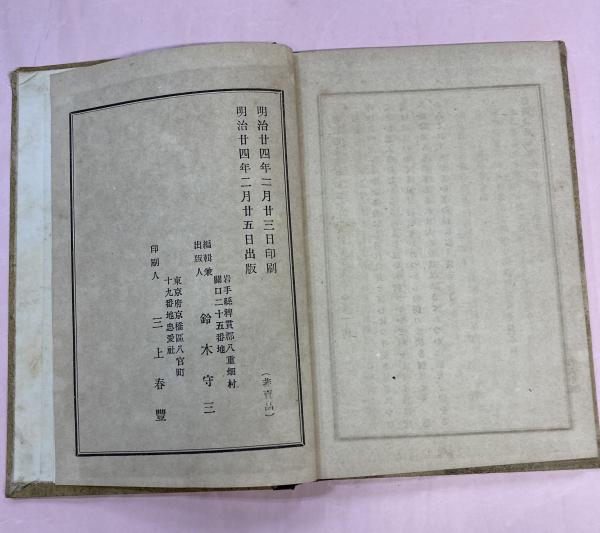 明治廿四年二月廿三日印刷
明治廿四年二月廿五日出版
(非賣品)
岩手縣稗貫郡八重畑村
關口二十五番地
編輯兼
出版人
鈴木守三
東京府京橋區八官町
十九番地忠愛社
印刷人
三上春豐